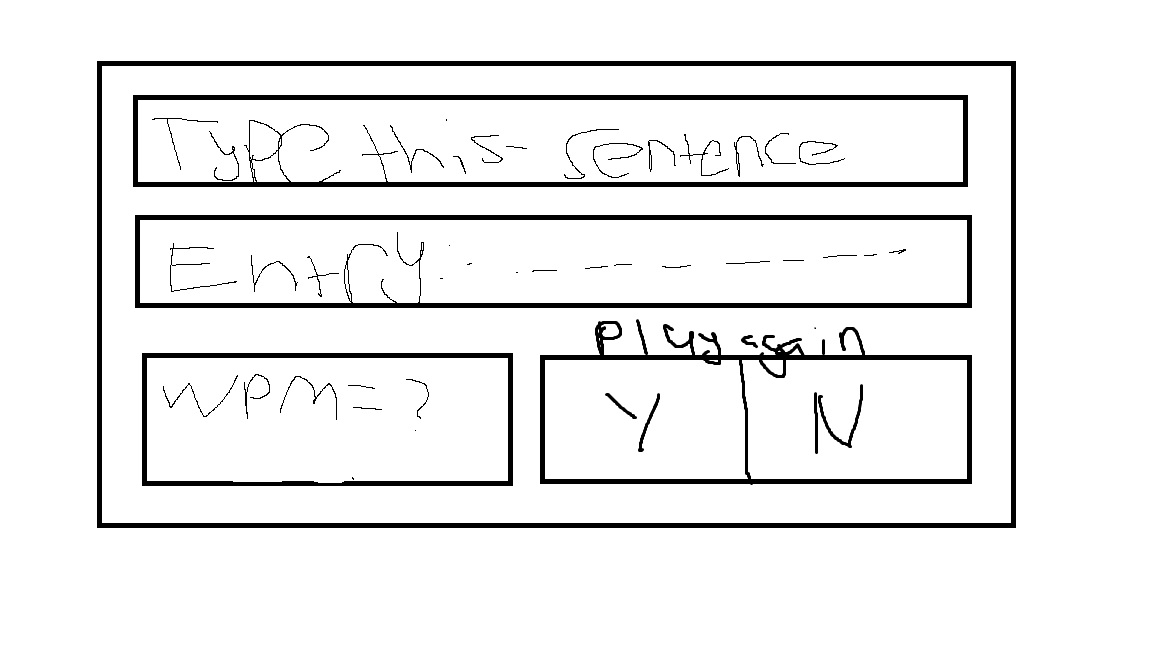 Type this sentence
Entry: - - - - - - - -
Play again
WPM = ?
Y N